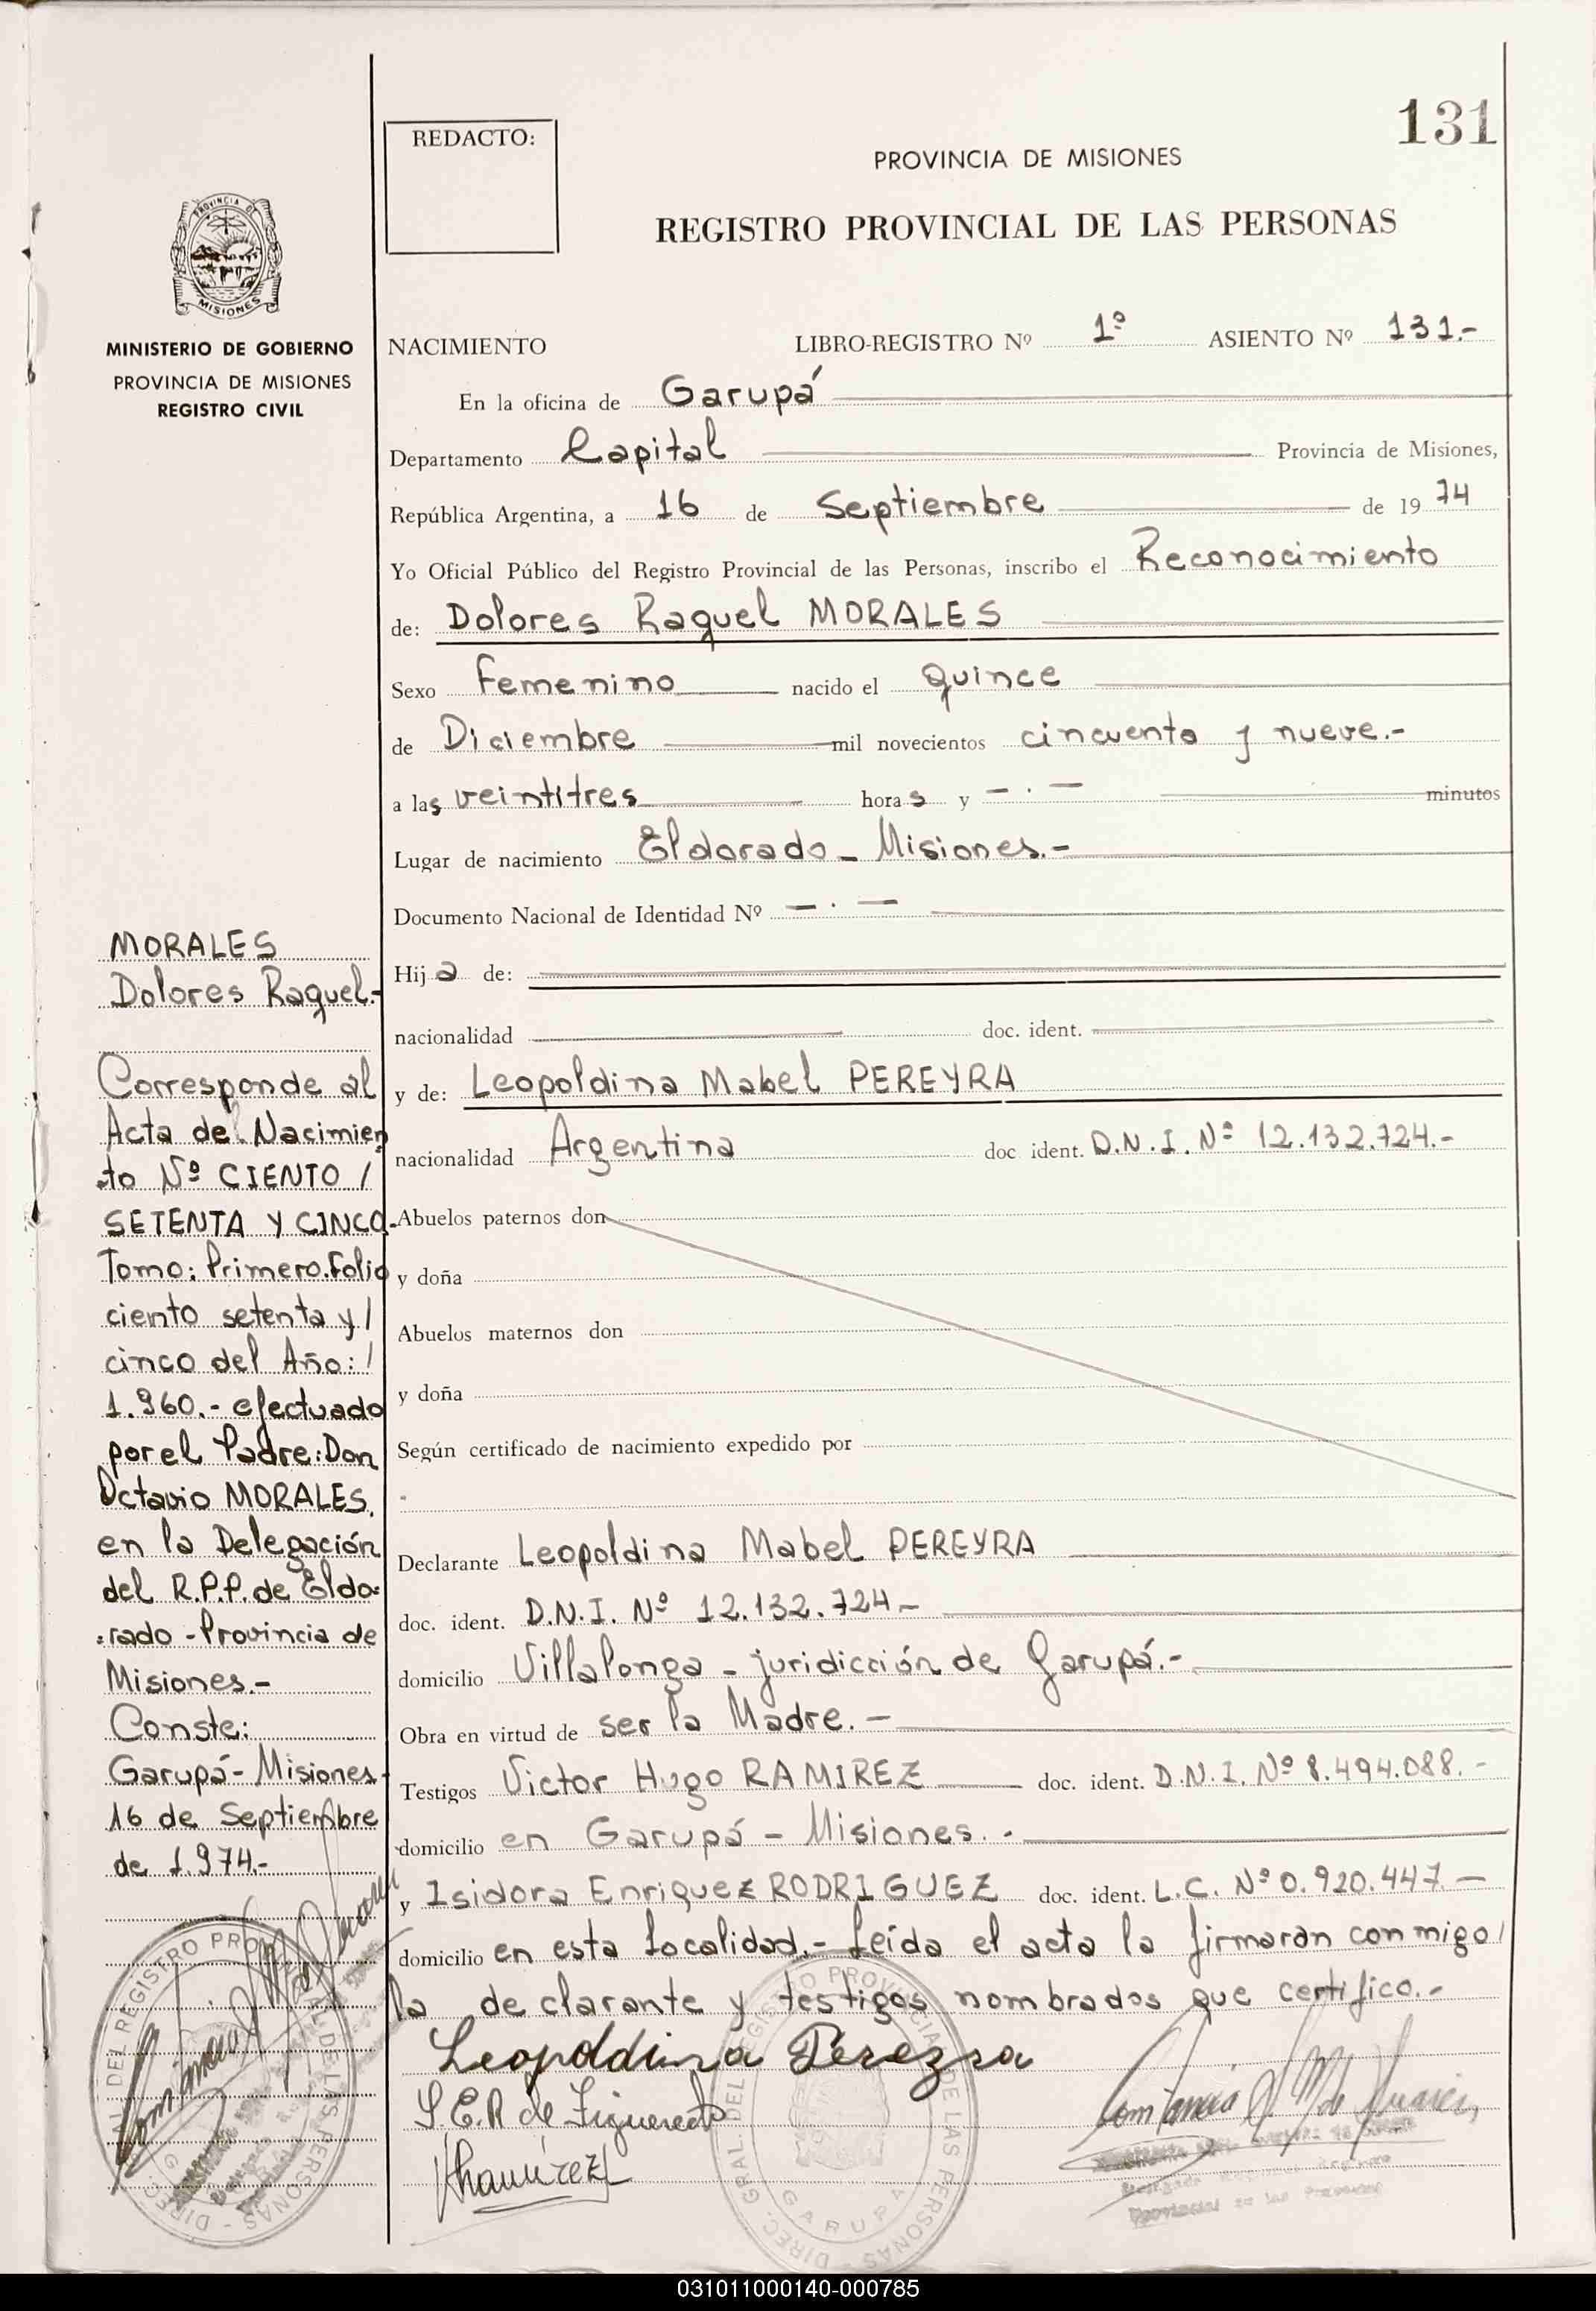 131
REDACTO:
PROVINCIA DE MISIONES
REGISTRO PROVINCIAL DE LAS PERSONAS
PROVINCIA DE
MISIONES
MINISTERIO DE GOBIERNO
PROVINCIA DE MISIONES
REGISTRO CIVIL
NACIMIENTO LIBRO-REGISTRO Nº 1º ASIENTO Nº 131.-
En la oficina de Garupá
Departamento Capital Provincia de Misiones,
República Argentina, a 16 de Septiembre de 1974
Yo Oficial Público del Registro Provincial de las Personas, inscribo el Reconocimiento
de: Dolores Raquel MORALES
Sexo Femenino nacido el quince
de Diciembre mil novecientos cincuenta y nueve.-
a las veintitres horas y — . — minutos
Lugar de nacimiento Eldorado - Misiones.-
Documento Nacional de Identidad Nº — . —
Hija de:
nacionalidad doc. ident.
y de: Leopoldina Mabel PEREYRA
nacionalidad Argentina doc ident. D.N.I. Nº 12.132.724.-
Abuelos paternos don
y doña
Abuelos maternos don
y doña
Según certificado de nacimiento expedido por
Declarante Leopoldina Mabel PEREYRA
doc. ident. D.N.I. Nº 12.132.724.-
domicilio Villalonga - juridicción de Garupá.-
Obra en virtud de ser la Madre.-
Testigos Victor Hugo RAMIREZ doc. ident. D.N.I. Nº 8.494.088.-
domicilio en Garupá - Misiones.-
y Isidora Enriquez RODRIGUEZ doc. ident. L.C. Nº 0.920.447.-
domicilio en esta localidad.- Leída el acta la firmaron conmigo/
la declarante y testigos nombrados que certifico.-
Leopoldina Pereyra
S.E.R de Figueredo
VhRamirez
MORALES
Dolores Raquel.-
Corresponde al
Acta de Nacimien
to Nº CIENTO /
SETENTA Y CINCO.
Tomo: Primero. Folio
ciento setenta y /
cinco del Año: /
1.960.- efectuado
por el Padre: Don
Octavio MORALES,
en la Delegación
del R.P.P. de Eldo-
:rado - Provincia de
Misiones.-
Conste:
Garupá - Misiones
16 de Septiembre
de 1.974.-
DIREC. GRAL. DEL REGISTRO PROVINCIAL DE LAS PERSONAS
GARUPA
031011000140-000785